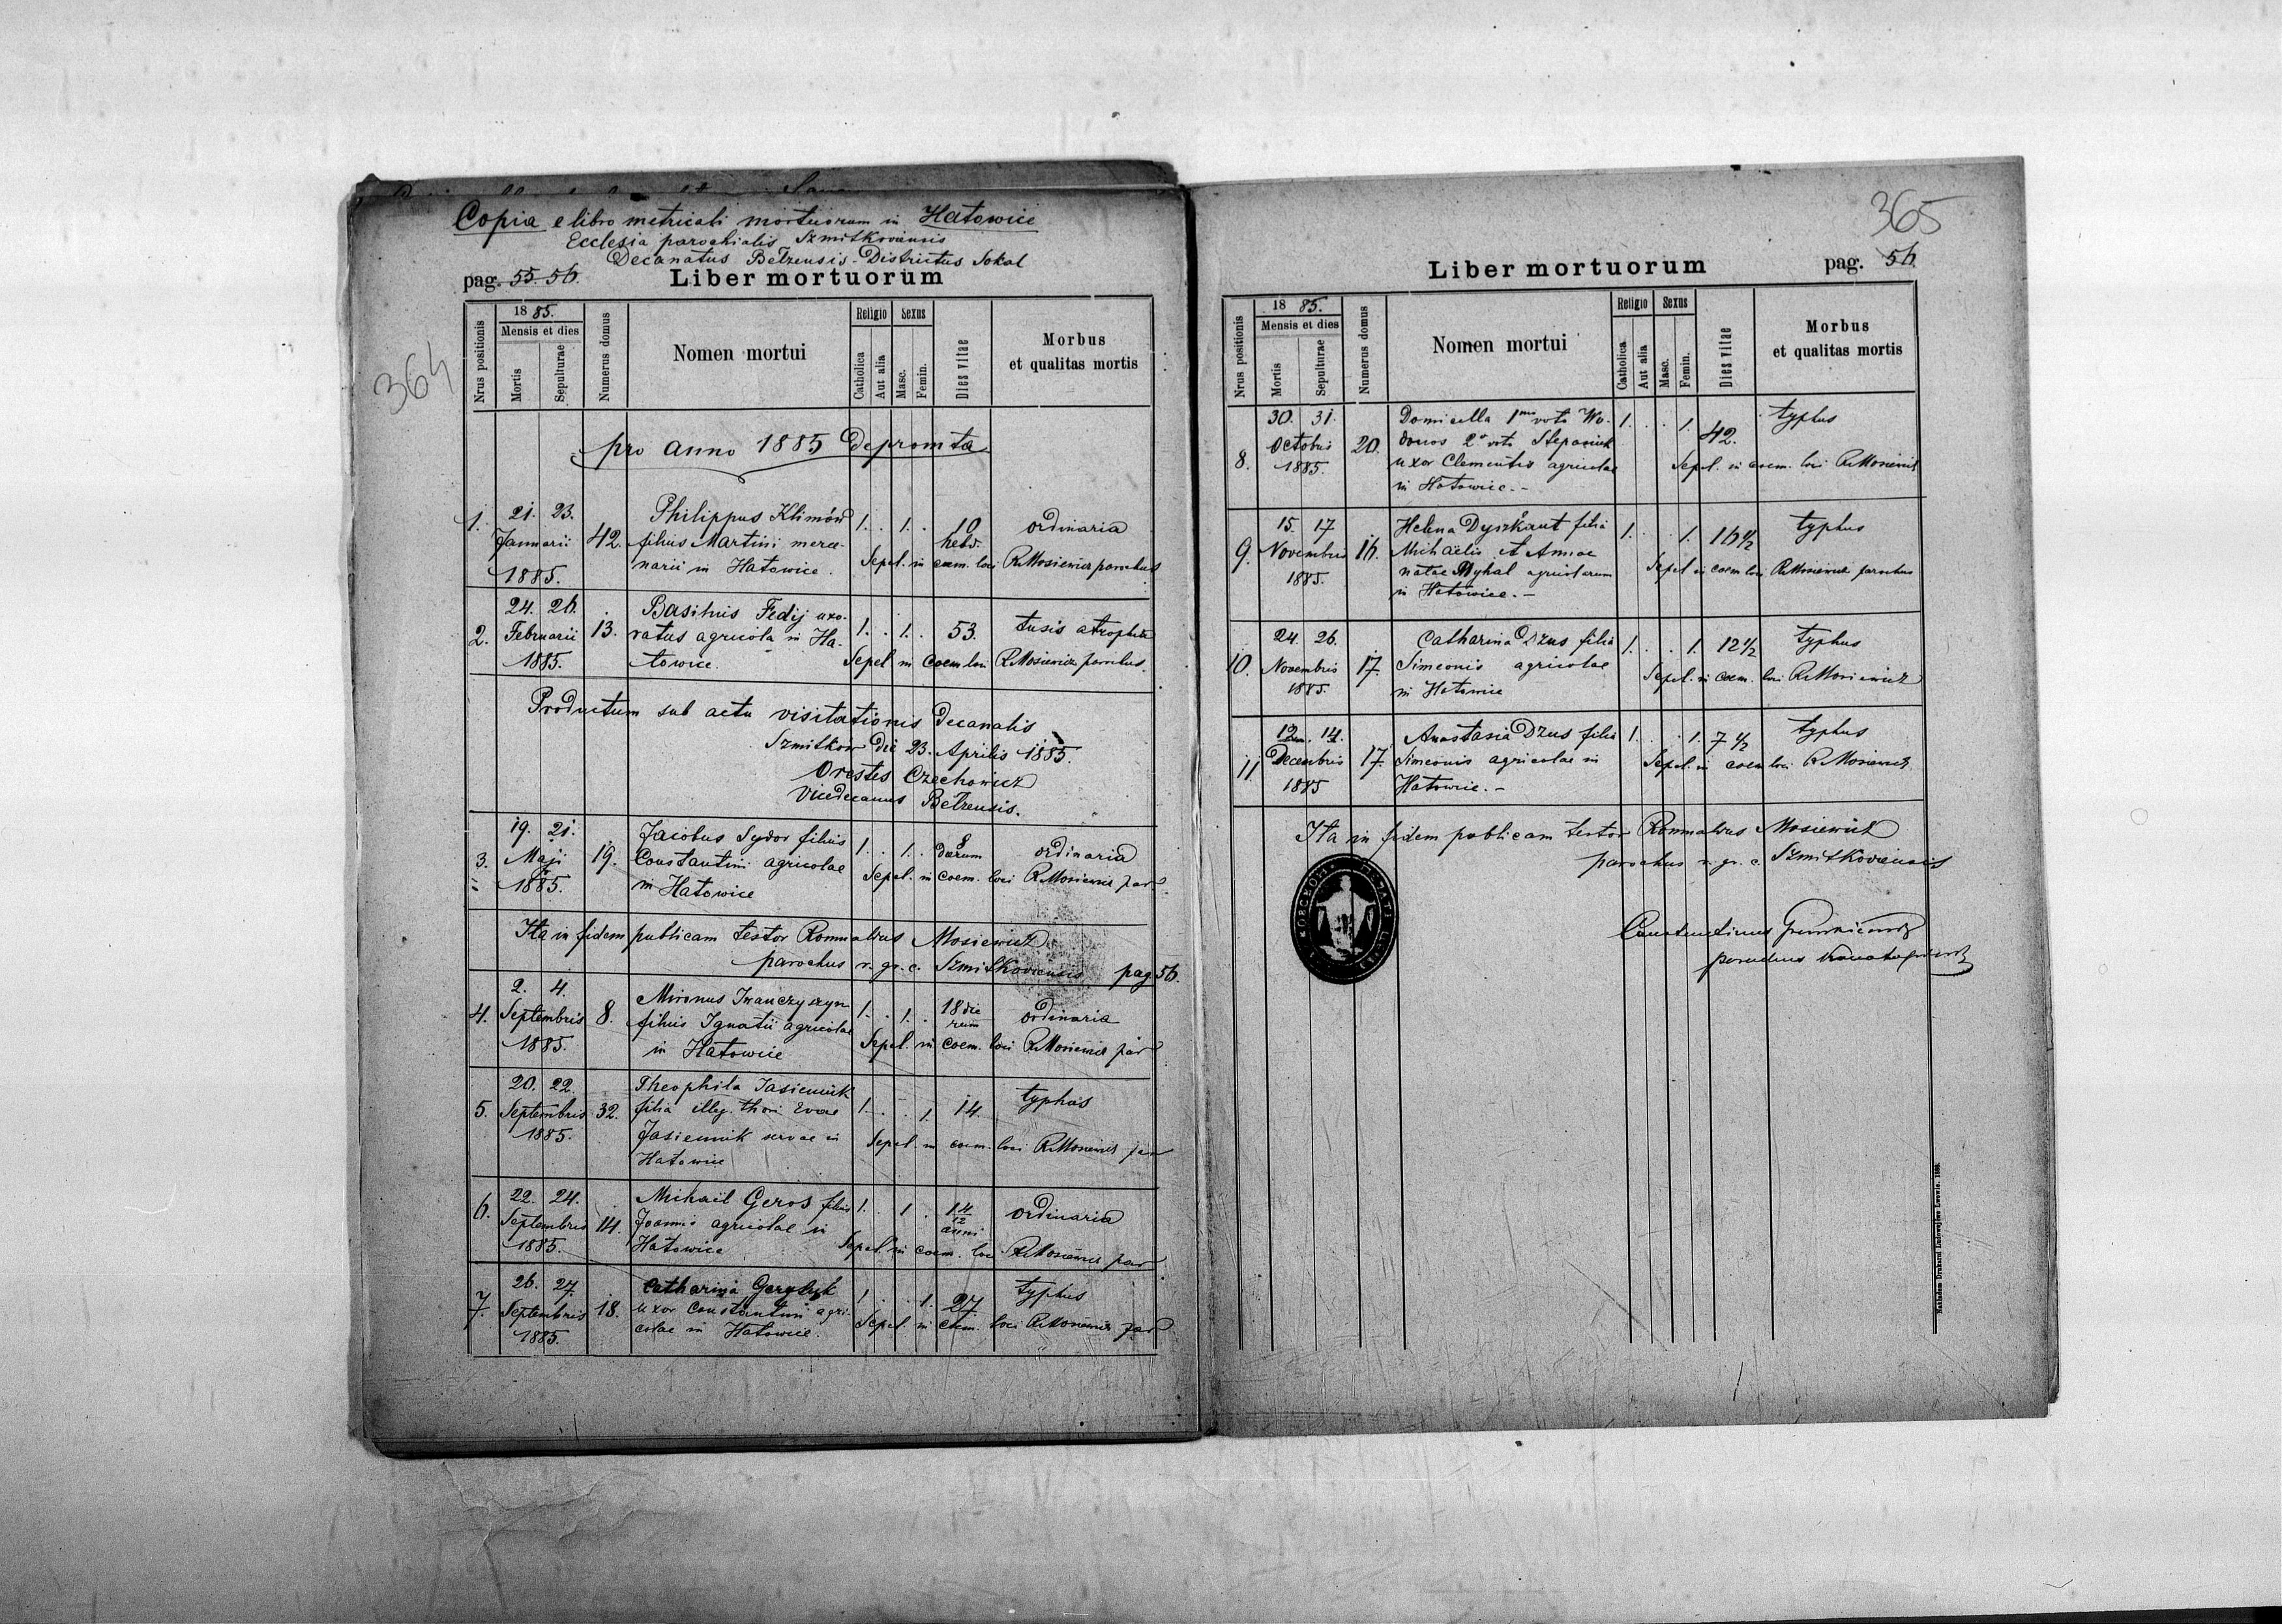 Copia e libro metricali mortuorum in Hatowice
Ecclesia parochialis Szmitkoviensis
Decanatus Betzensis - Districtus Sokal
pag. 55. 56.
Liber mortuorum
364
Nrus positionis
18 85.
Mensis et dies
Mortis
Sepulturae
Numerus domus
Nomen mortui
Religio
Catholica
Aut alia
Sexus
Masc.
Femin.
Dies vitae
Morbus
et qualitas mortis
pro anno 1885 depromta
1. 21. 23. Januarii 1885. 42. Philippus Klimów 1. . 1. . 10 hebd. ordinaria
filius Martini merce-
narii in Hatowice.
Sepel. in coem. loci R Mosiewicz parochus
2. 24. 26. Februarii 1885. 13. Basilius Fedij uxo- 1. . 1. . 53. tusis
ratus agricola in Ha-
towice.
Sepel in coem loci R Mosiewicz parochus.
Productum sub actu visitationis decanalis
Szmitków die 23. Aprilis 1885.
Orestes Czechowicz
Vicedecanus Betzensis.
3. 19. 21. Maji 1885. 19. Jacobus Sydor filius 1. . 1. . ordinaria
Constantini agricolae
in Hatowice
Sepel. in coem. loci R Mosiewicz par
Ita in fidem publicam testor Romualdus Mosiewicz
parochus r. gr. c. Szmitkoviensis pag 56.
4. 2. 4. Septembris 1885. 8. Mironus Iwanczyszyn 1. . 1. . 18 die
rum ordinaria
filius Ignatii agricolae
in Hatowice
Sepel. in coem. loci R Mosiewicz par
5. 20. 22. Septembris 1885. 32. Theophila Jasieniuk 1. . . 1. 14. typhus
filia illeg. thori Evae
Jasieniuk servae in
Hatowice
Sepel. in coem. loci R Mosiewicz par
6. 22. 24. Septembris 1885. 14. Mihaël Geros filius 1. . 1 . 14
12
anni ordinaria
Joannis agricolae in
Hatowice
Sepel. in coem. loci R Mosiewicz par
7. 26. 27. Septembris 1885. 18. Catharina 1 . . 1. 27. typhus
uxor Constantini agri-
colae in Hatowice.
Sepel. in coem. loci R Mosiewicz par
365
Liber mortuorum
pag. 56
Nrus positionis
18 85.
Mensis et dies
Mortis
Sepulturae
Numerus domus
Nomen mortui
Religio
Catholica
Aut alia
Sexus
Masc.
Femin.
Dies vitae
Morbus
et qualitas mortis
8. 30. 31. Octobris 1885. 20. Domicella 1mo voto Wo- 1. . . 1. 42. typhus
donos 2o voto Stepaniuk
uxor Clementis agricolae
in Hatowice. -
Sepel. in coem. loci R Mosiewicz
9. 15. 17 Novembris 1885. 16. Helena Dyszkant filia 1. . . 1. 16 1/2 typhus
Mihaëlis et Annae
natae Myhal agricolarum
in Hatowice. -
Sepel in coem loci R Mosiewicz parochus
10. 24. 26. Novembris 1885. 17. Catharina Dzus filia 1. . . 1. 12 1/2 typhus
Simeonis agricolae
in Hatowice
Sepel. in coem. loci R Mosiewicz
11 12. 14. Decembris 1885 17. Anastasia Dzus filia 1. . . 1. 7 1/2 typhus
Simeonis agricolae in
Hatowice. -
Sepel. in coem loci R Mosiewicz
Ita in fidem publicam testor Romualdus Mosiewicz
parochus r. gr. c. Szmitkoviensis
Constantinus
parochus
Nakładem Drukarni Ludowej we Lwowie. 1888.